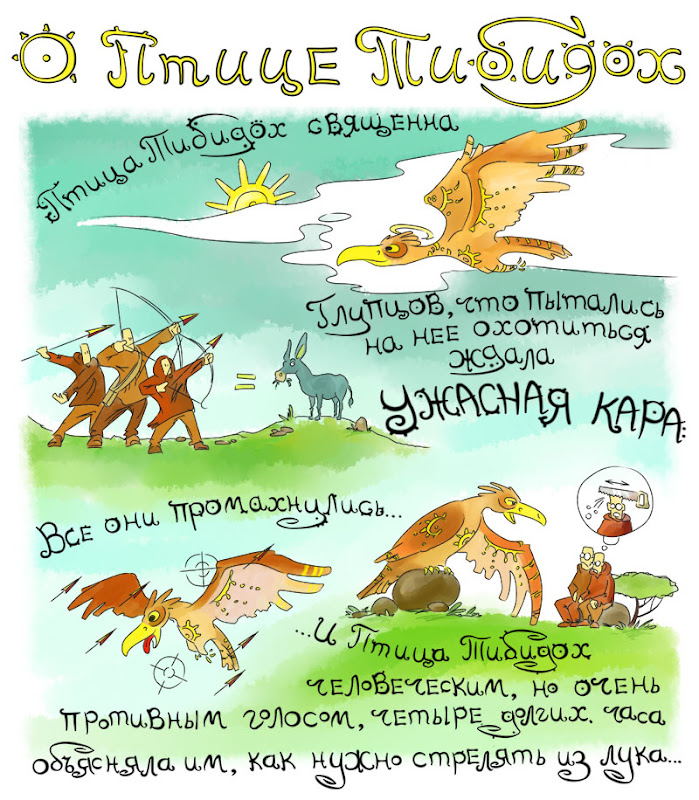 О Птице Ти-бидох
Птица Тибидох священна
Глупцов, что пытались
на нее охотиться
ждала
УЖАСНАЯ КАРА:
=
Все они промахнулись...
...И Птица Тибидох
человеческим, но очень
противным голосом, четыре долгих. часа
объясняла им, как нужно стрелять из лука...